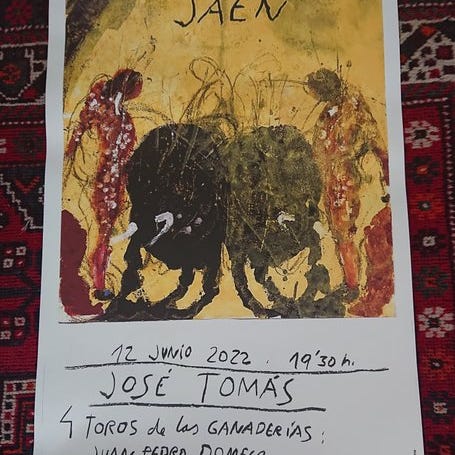 JAEN
12 JUNIO 2022. 19'30 h.
JOSÉ TOMÁS
4 TOROS de las GANADERÍAS:
JUAN PEDRO DOMECQ